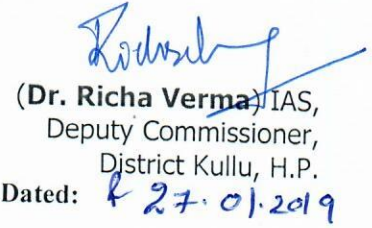 (Dr. Richa Verma) IAS,
Deputy Commissioner,
District Kullu, H.P.
Dated: 27.01.2019